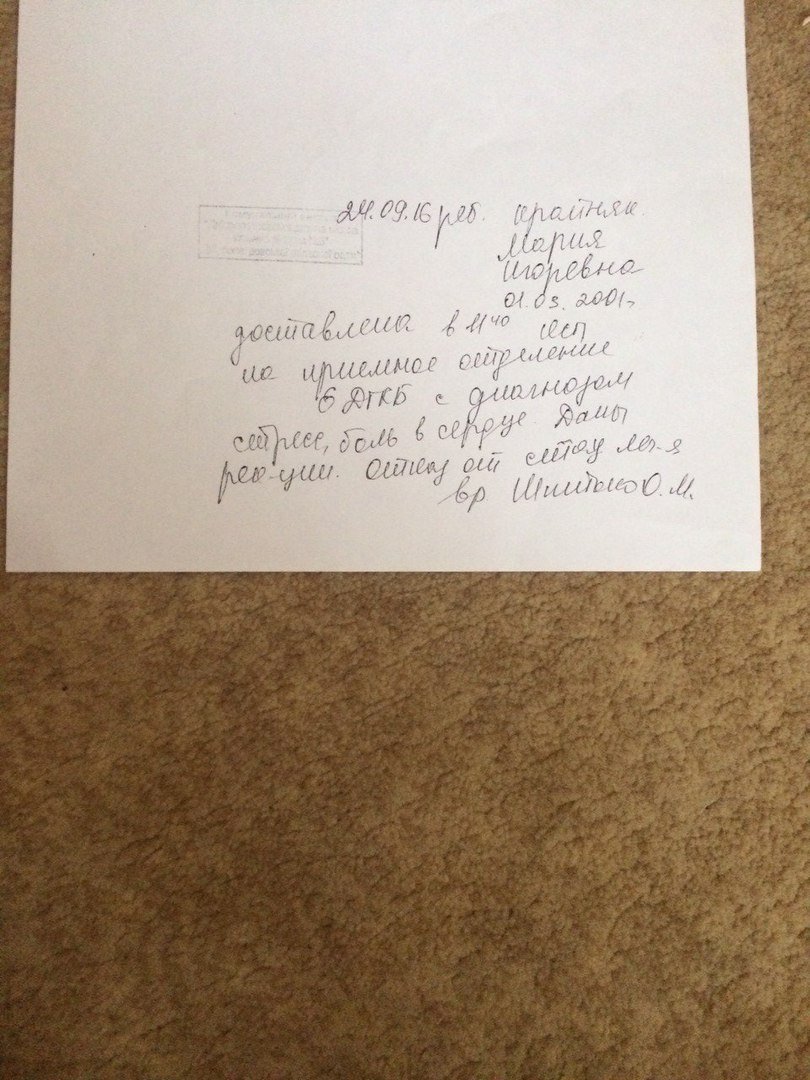 24.09.16 реб. Крайняк
Мария
Игоревна
01.03.2001г.
доставлена в 11 40
на приемное отделение
6 ДГКБ с диагнозом
стресс, боль в сердце. Даны
рек-ции. Отказ от стац леч-я
вр О.М.